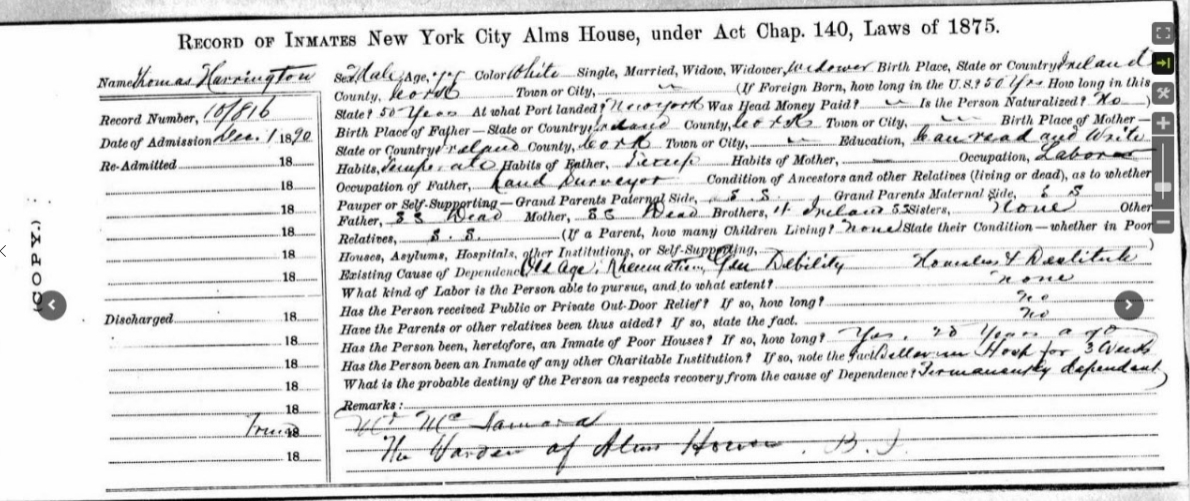 RECORD OF INMATES NEW YORK CITY ALMS HOUSE, UNDER ACT CHAP. 140, LAWS OF 1875.
Name Thomas Harrington
Record Number, 10816
Date of Admission Dec. 1 1890
Re-Admitted 18
18
18
18
18
18
Discharged 18
18
18
18
18
18
18
(COPY.)
Sex Male Age, Color White Single, Married, Widow, Widower, Widower Birth Place, State or Country Ireland
County, Cork Town or City, (If Foreign Born, how long in the U.S.? 50 Yrs How long in this
State? 50 Years At what Port landed? New York Was Head Money Paid? Is the Person Naturalized? No )
Birth Place of Father — State or Country, Ireland County, Cork Town or City, Birth Place of Mother —
State or Country Ireland County, Cork Town or City, Education, Can read and Write
Habits, Temperate Habits of Father, Temp Habits of Mother, Occupation, Laborer
Occupation of Father, Land Surveyor Condition of Ancestors and other Relatives (living or dead), as to whether
Pauper or Self-Supporting — Grand Parents Paternal Side, S. S. Grand Parents Maternal Side, S S
Father, S S Dead Mother, S S Dead Brothers, Ireland SS Sisters, None Other
Relatives, S. S. (If a Parent, how many Children Living? None State their Condition — whether in Poor
Houses, Asylums, Hospitals, other Institutions, or Self-Supporting, )
Existing Cause of Dependence Old Age, Rheumatism, Gen Debility Homeless & Destitute
What kind of Labor is the Person able to pursue, and to what extent? none
Has the Person received Public or Private Out-Door Relief? If so, how long? no
Have the Parents or other relatives been thus aided? If so, state the fact. no
Has the Person been, heretofore, an Inmate of Poor Houses? If so, how long? Yes, 20 Years ago
Has the Person been an Inmate of any other Charitable Institution? If so, note the fact Bellevue Hosp for 3 Weeks
What is the probable destiny of the Person as respects recovery from the cause of Dependence? Permanently dependent
Remarks:
The Warden of Alms House. B. I.